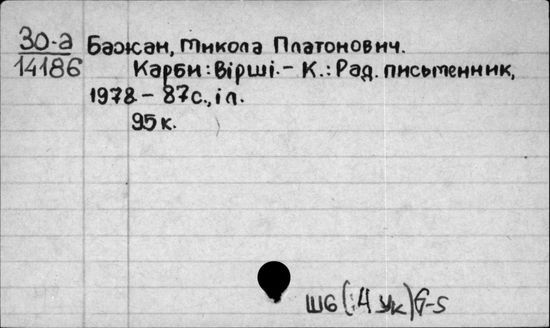 30-а
14186
Бажан, Микола Платонович.
Карби: Вірші. - К.: Рад. письменник,
1978. - 87с., іл.
95к.
Ш6(:4Ук)6-5